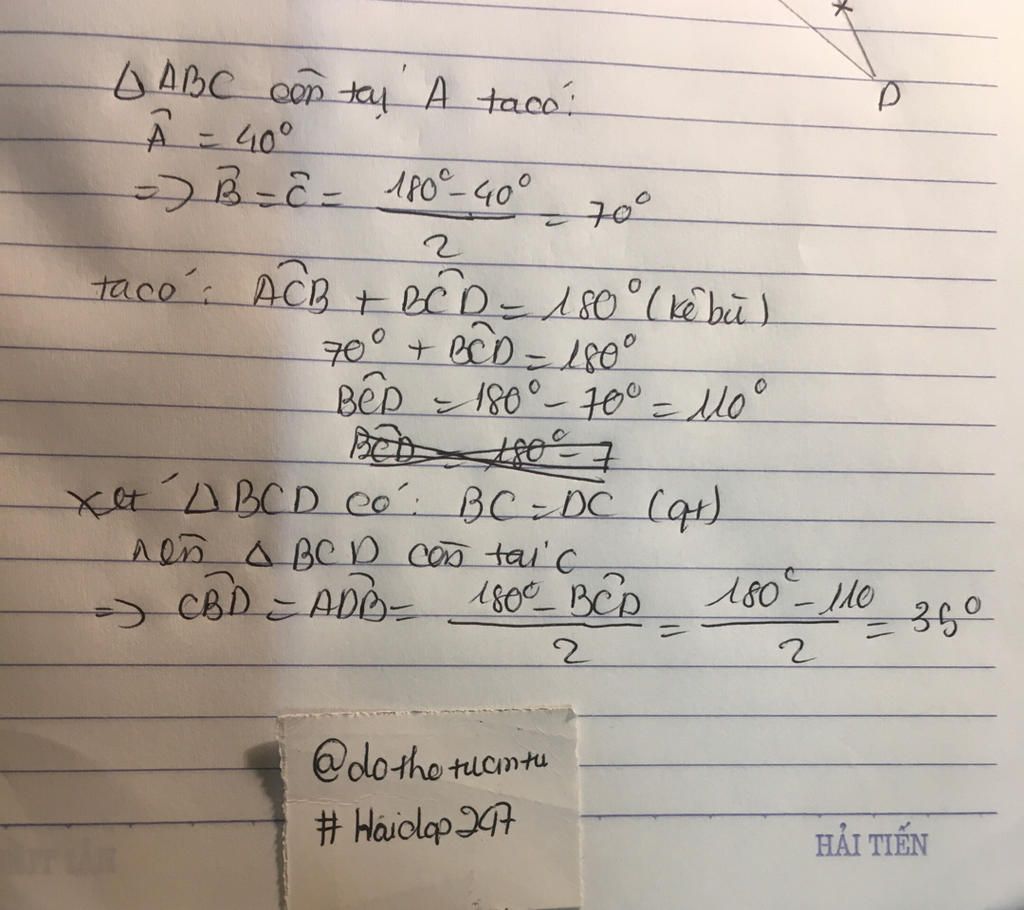 D
ΔABC cân tại A ta có:
Â = 40°
=> B̂ = Ĉ = (180° - 40°)/2 = 70°
ta có: AĈB + BĈD = 180° (kề bù)
70° + BĈD = 180°
BĈD = 180° - 70° = 110°
BĈD = 180° - 7
xét ΔBCD có: BC = DC (gt)
nên ΔBCD cân tại C
=> CB̂D = AD̂B = (180° - BĈD)/2 = (180° - 110)/2 = 35°
@dothetuantu
#Hoidap247
HẢI TIẾN